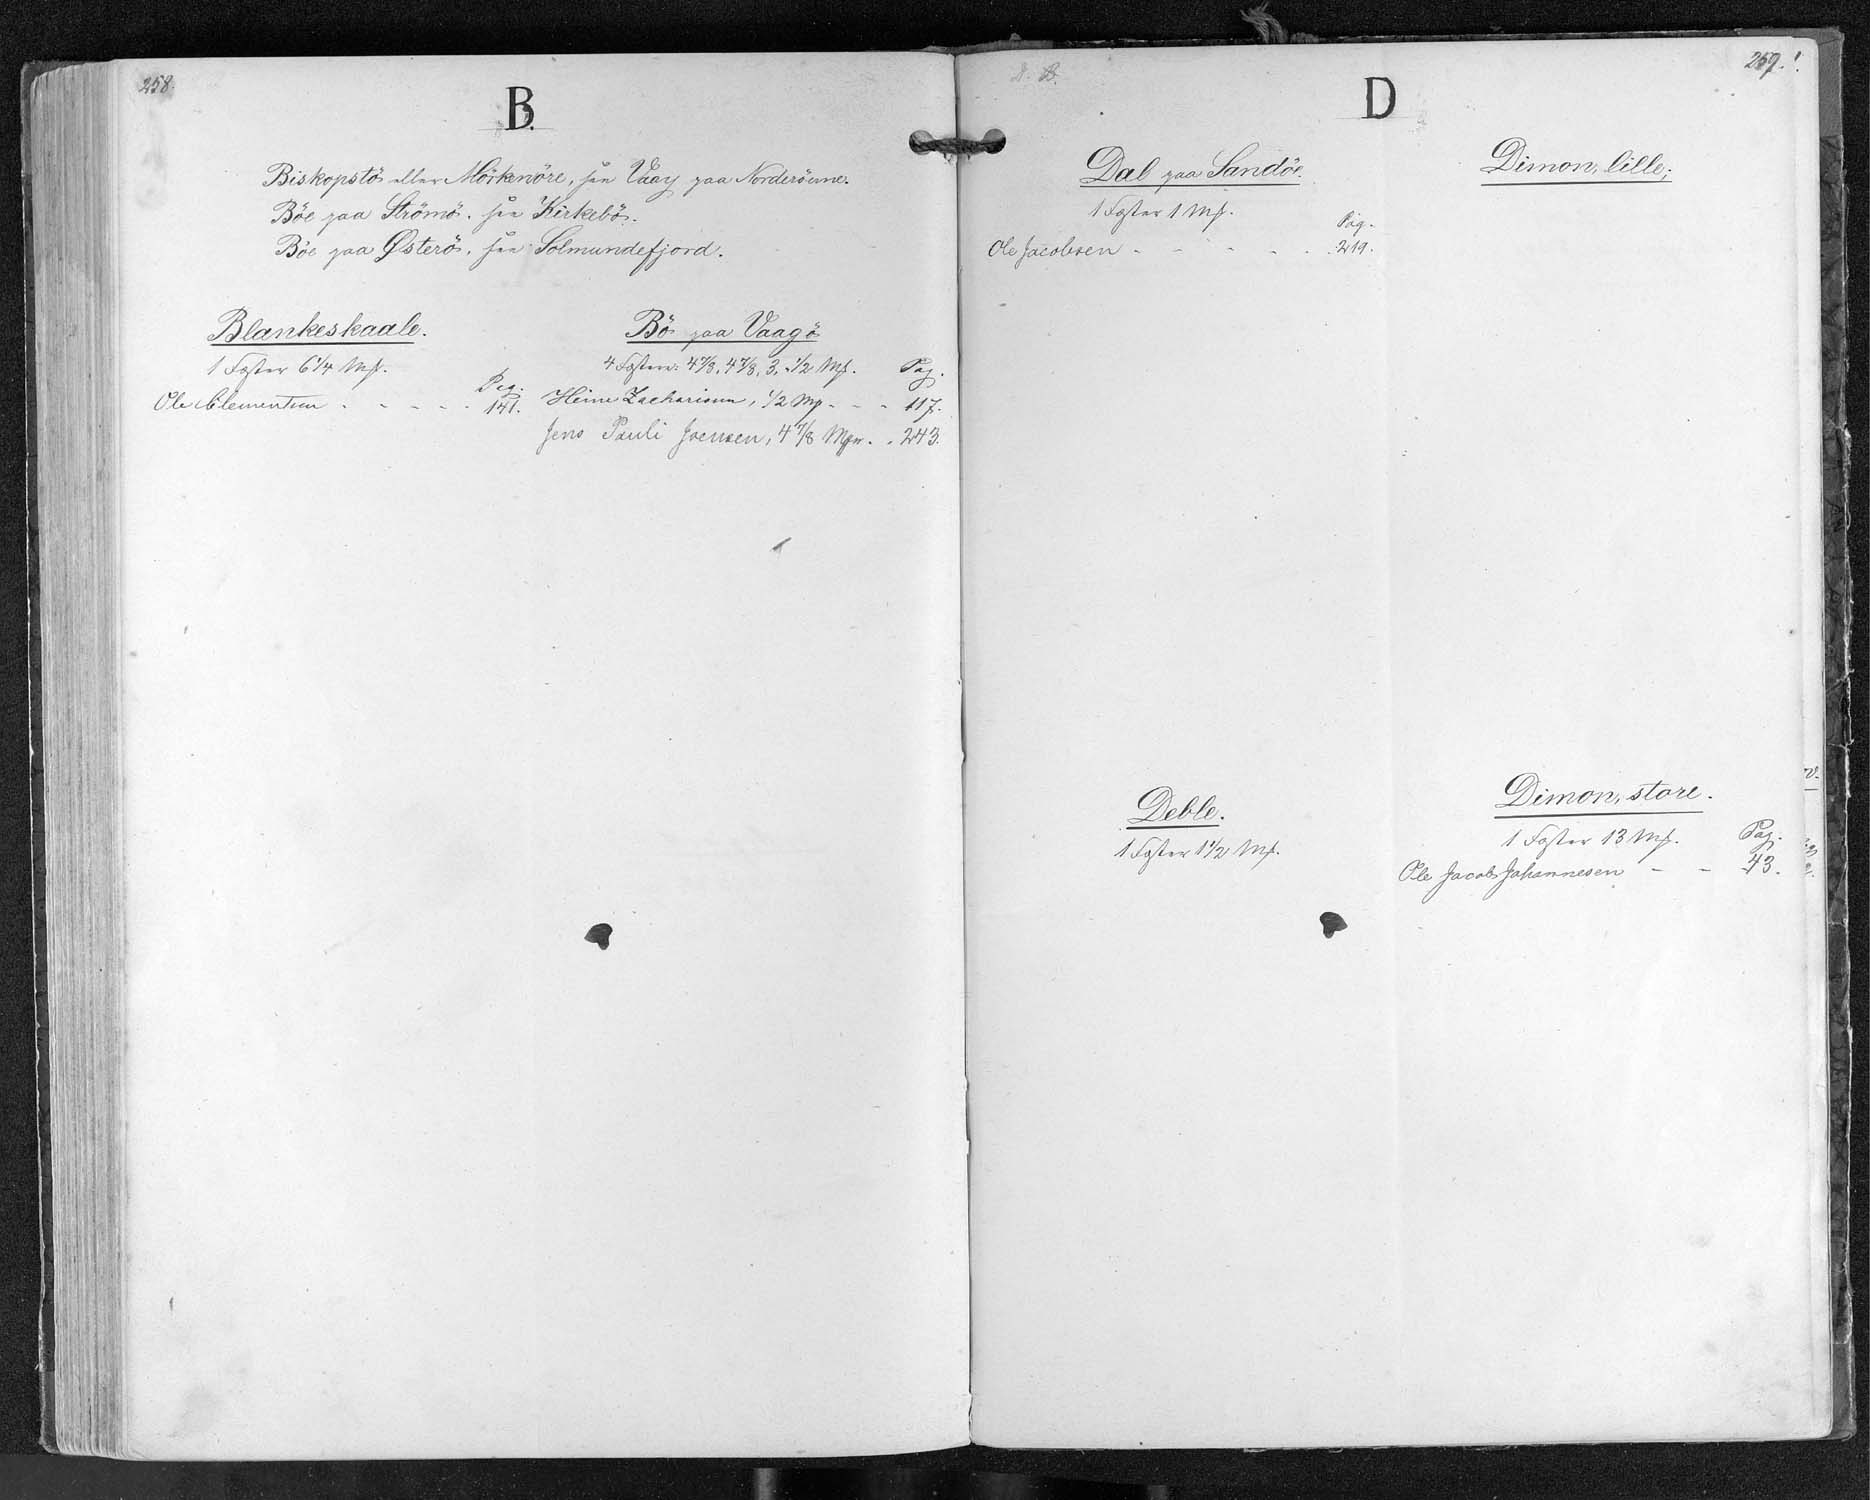 258.
B.
Biskopstö eller Mörkenöre, see Vaag paa Norderöerne.
Böe paa Strömö. see Kirkebö.
Böe paa Österö, see Solmundefjord.
Blankeskaale.
1 Fæster 6 1/4 Mk.
Pag.
Ole Clementsen - - - - - 141.
Bö paa Vaagö
4 Fæstere: 4 7/8, 4 7/8, 3, 1/2 Mk. Pag.
Heine Zachariasen, 1/2 Mk - - - 117.
Jens Pauli Joensen, 4 7/8 Mkr. . 243.
259.
D
Dal paa Sandöe.
1 Fæster 1 Mk.
Pag.
Ole Jacobsen - - - - - 219.
Dimon, lille;
Deble.
1 Fæster 1 1/2 Mk.
Dimon, store.
1 Fæster 13 Mk. Pag.
Ole Jacob Johannesen - - 43.